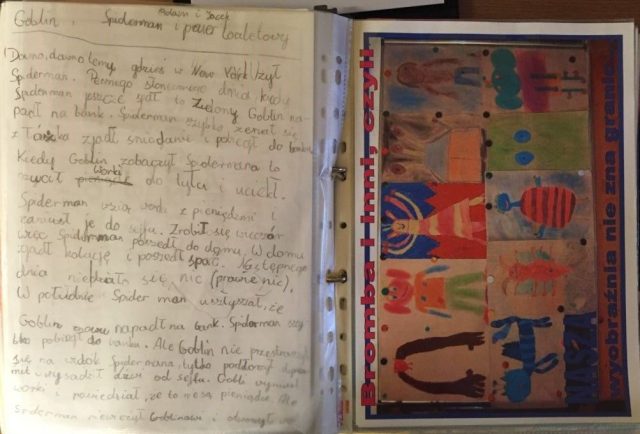 Adam i Jacek
Goblin, Spiderman i papier toaletowy
Dawno, dawno temu, gdzieś w Nowo York żył
Spiderman. Pewnego słonecznego dnia kiedy
Spiderman jeszcze spał to Zielony Goblin na-
padł na bank. Spiderman szybko zerwał się
z łóżka zjadł śniadanie i pobiegł do banku
Kiedy Goblin zobaczył Spidermana to
worki
rzucił pieniądze do tyłu i uciekł.
Spiderman wziął worki z pieniędzmi i
zaniusł je do sejfu. Zrobił się wieczór
więc Spiderman poszedł do domu. W domu
zjadł kolację i poszedł spać. Następnego
dnia niedziało się nic (prawie nic).
W południe Spider man usłyszał, że
Goblin znowu napadł na bank. Spiderman szy-
bko pobiegł do banku. Ale Goblin nie przestraszył
się na widok Spidermana, tylko podłożył dyna-
mit i wysadził drzwi od sejfu. Goblin wyniósł
worki i powiedział, że to nie są pieniądze. Ale
Spiderman niewierzył Goblinowi i otworzył
Bromba i inni, czyli
NASZA
wyobraźnia nie zna granic...